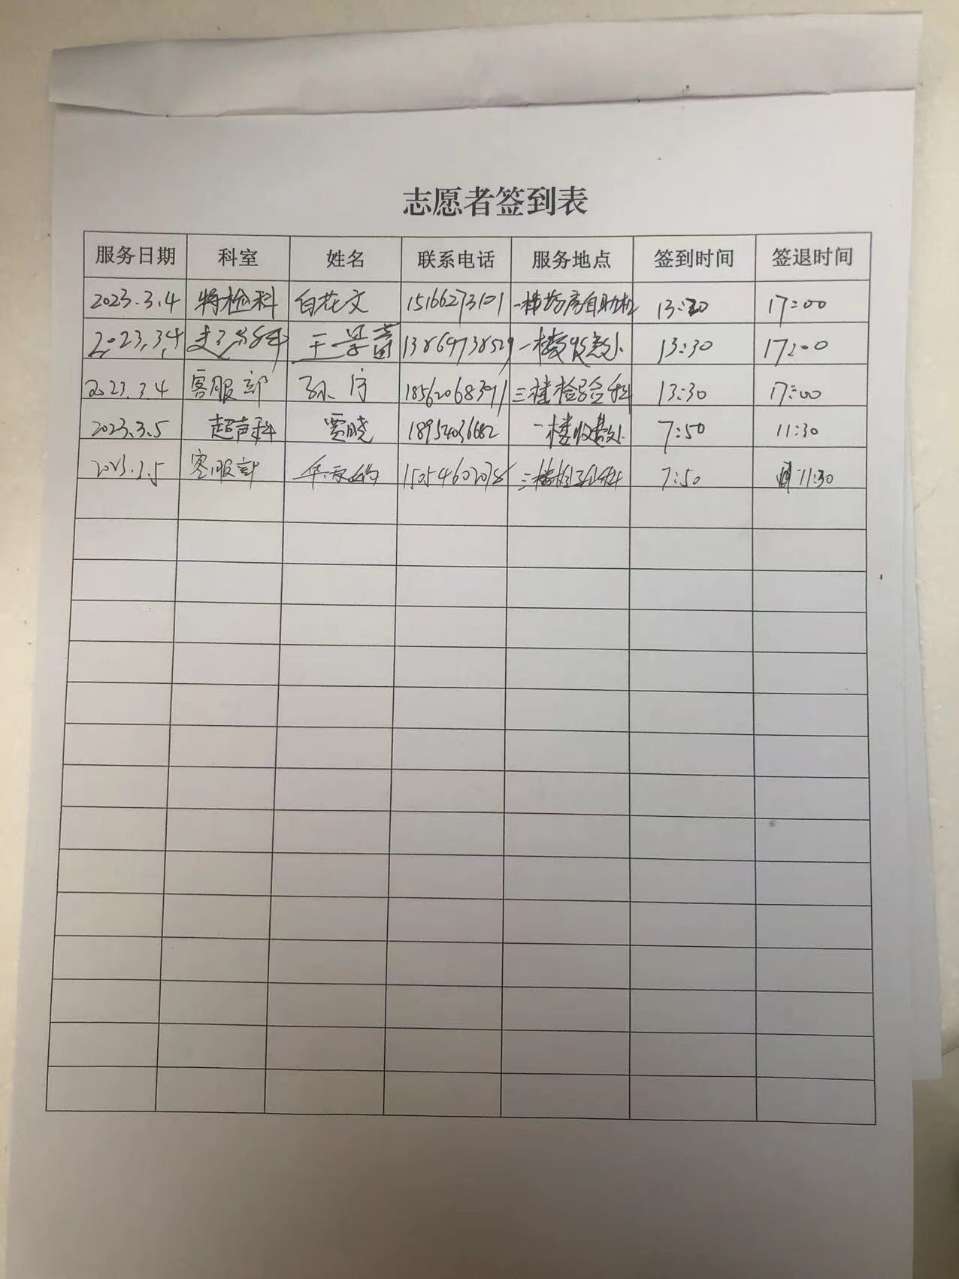 志愿者签到表
服务日期 科室 姓名 联系电话 服务地点 签到时间 签退时间
2023.3.4 特检科 白花文 15166273101 一楼药房自助机 13:30 17:00
2023.3.4 王景 13864738529 一楼收费处 13:30 17:00
2023.3.4 客服部 孙 18562068371 三楼检验科 13:30 17:00
2023.3.5 超声科 贾晓 18954036682 一楼收费处 7:50 11:30
2023.3.5 客服部 三楼检验科 7:50 11:30